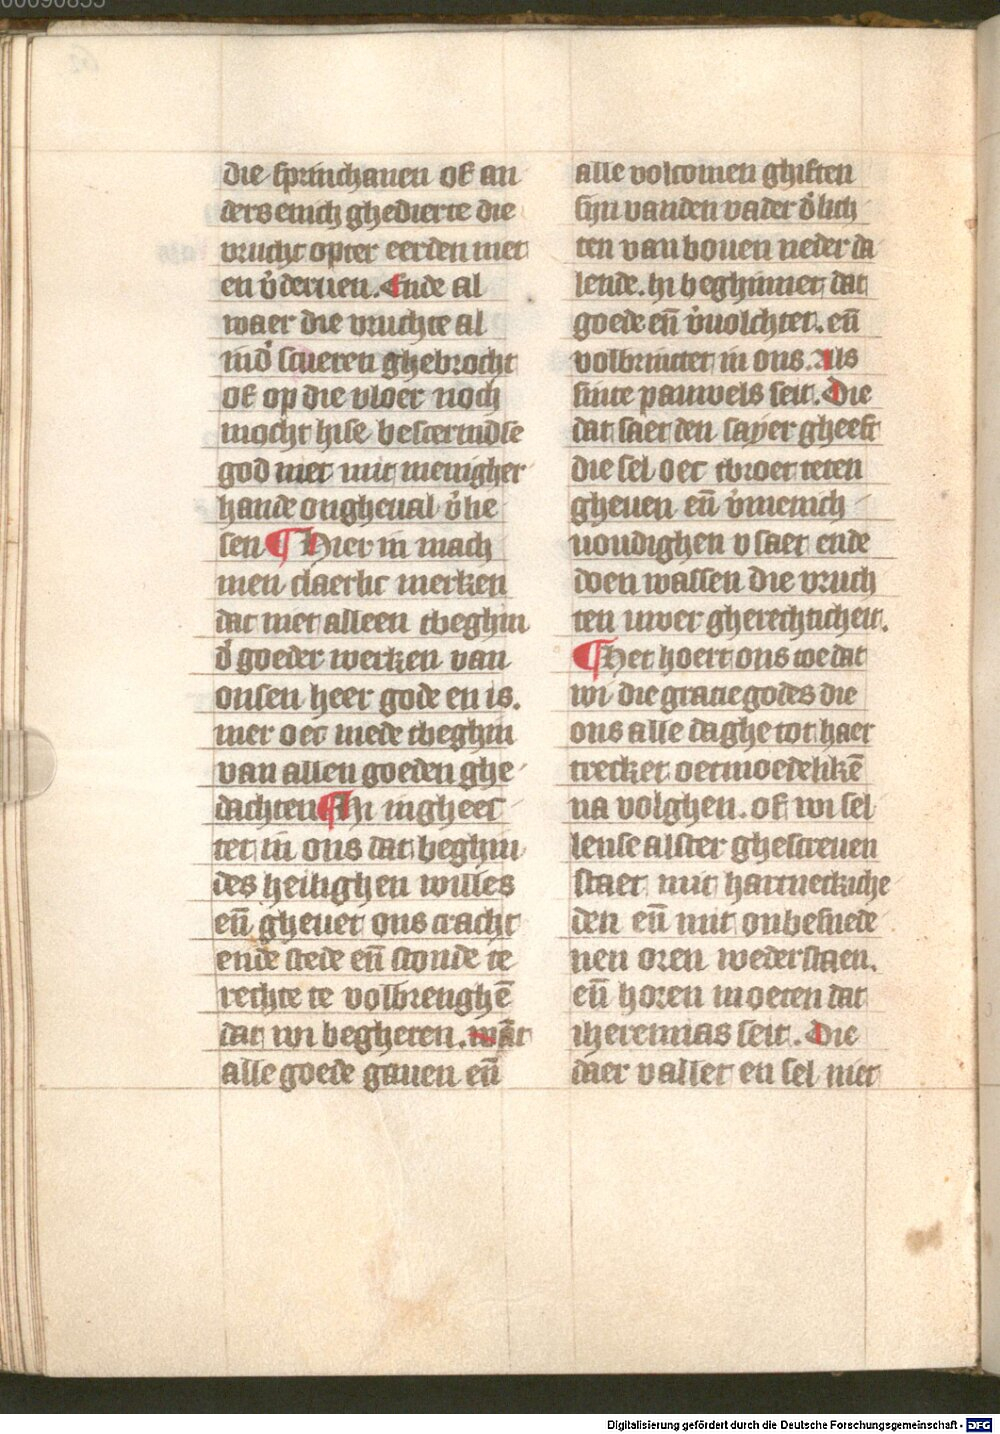 00090855
die sprinchanen of an
ders enich ghedierte die
vrucht opter eerden niet
en v̉deruen. Ende al
waer die vruchte al
ind̉ scueren ghebrocht
of op die vloer noch
mocht hise bescermdse
god niet mit menigher
hande ongheual v̉lie
sen ¶ Hier in mach
men claerlic merken
dat niet alleen tbeghin
d̉ goeder werken van
onsen heer gode en is.
mer oec mede tbeghin
van allen goeden ghe
dachten ¶ Hi ingheес
tet in ons dat beghin
des heilighen willes
en̄ gheuet ons cracht
ende stede en̄ stonde te
rechte te volbrenghē
dat wi begheren. wāt
alle goede gauen en̄
alle volcomen ghiften
sijn vanden vader d̉ lich
ten van bouen neder da
lende. hi beghinnet dat
goede en̄ v̉uolchtet. en̄
volbrinctet in ons. Als
sinte pauwels seit. Die
dat saet den sayer gheeft
die sel oec tbroet teten
gheuen en̄ v̉menich
uoudighen v saet ende
doen wassen die vruch
ten uwer gherechticheit.
¶ Het hoert ons toe dat
wi die gratie godes die
ons alle daghe tot haer
trecket oetmoedelikē
na volghen. of wi sel
lense alster ghescreuen
staet mit hartneckiche
den en̄ mit onbesnede
nen oren wederstaen.
en̄ horen moeten dat
iheremias seit. Die
daer vallet en sel niet
Digitalisierung gefördert durch die Deutsche Forschungsgemeinschaft - DFG